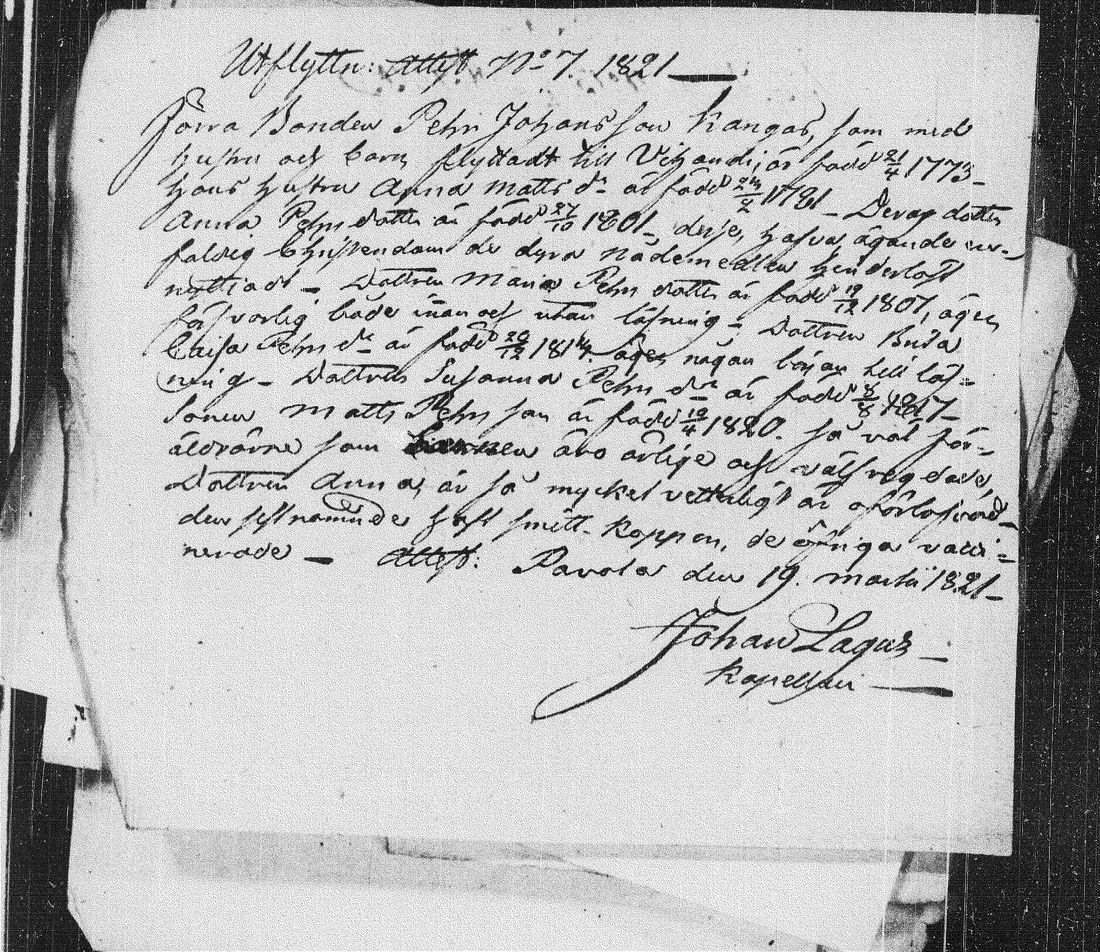 Utflyttn: Attest No 7. 1821
Förra Bonden Pehr Johansson Kangas, som med
hustru och barn flyttadt till Vihandi, är född 21/4 1773
Hans Hustru Anna Matts dr är född 1781 Deras dotter
Anna Pehrsdotter är född 27/10 1801 desse, hafva, ägande en-
faldig Christendom de dyra nådemedlen hinderlöst
nyttjadt Dottren Maria Pehrsdotter är född 19/12 1807, äger
försvarlig både innan och utan läsning Dottren Brita
Caisa Pehrs dr är född 26/12 1814. äger någon början till läs-
ning Dottren Susanna Pehrs dr är född 8/8 1817
Sonen Matts Pehrsson är född 19/4 1820. Så väl för-
äldrarne som barnen äro ärlige och välfregdade,
Dottren Anna, är så mycket vetterligt är oförlofvad
den sistnamnde haft smitt-koppor, de öfriga vacci-
nerade Attest: Pavola den 19. Martii 1821
Johan Lagus
Kapellan